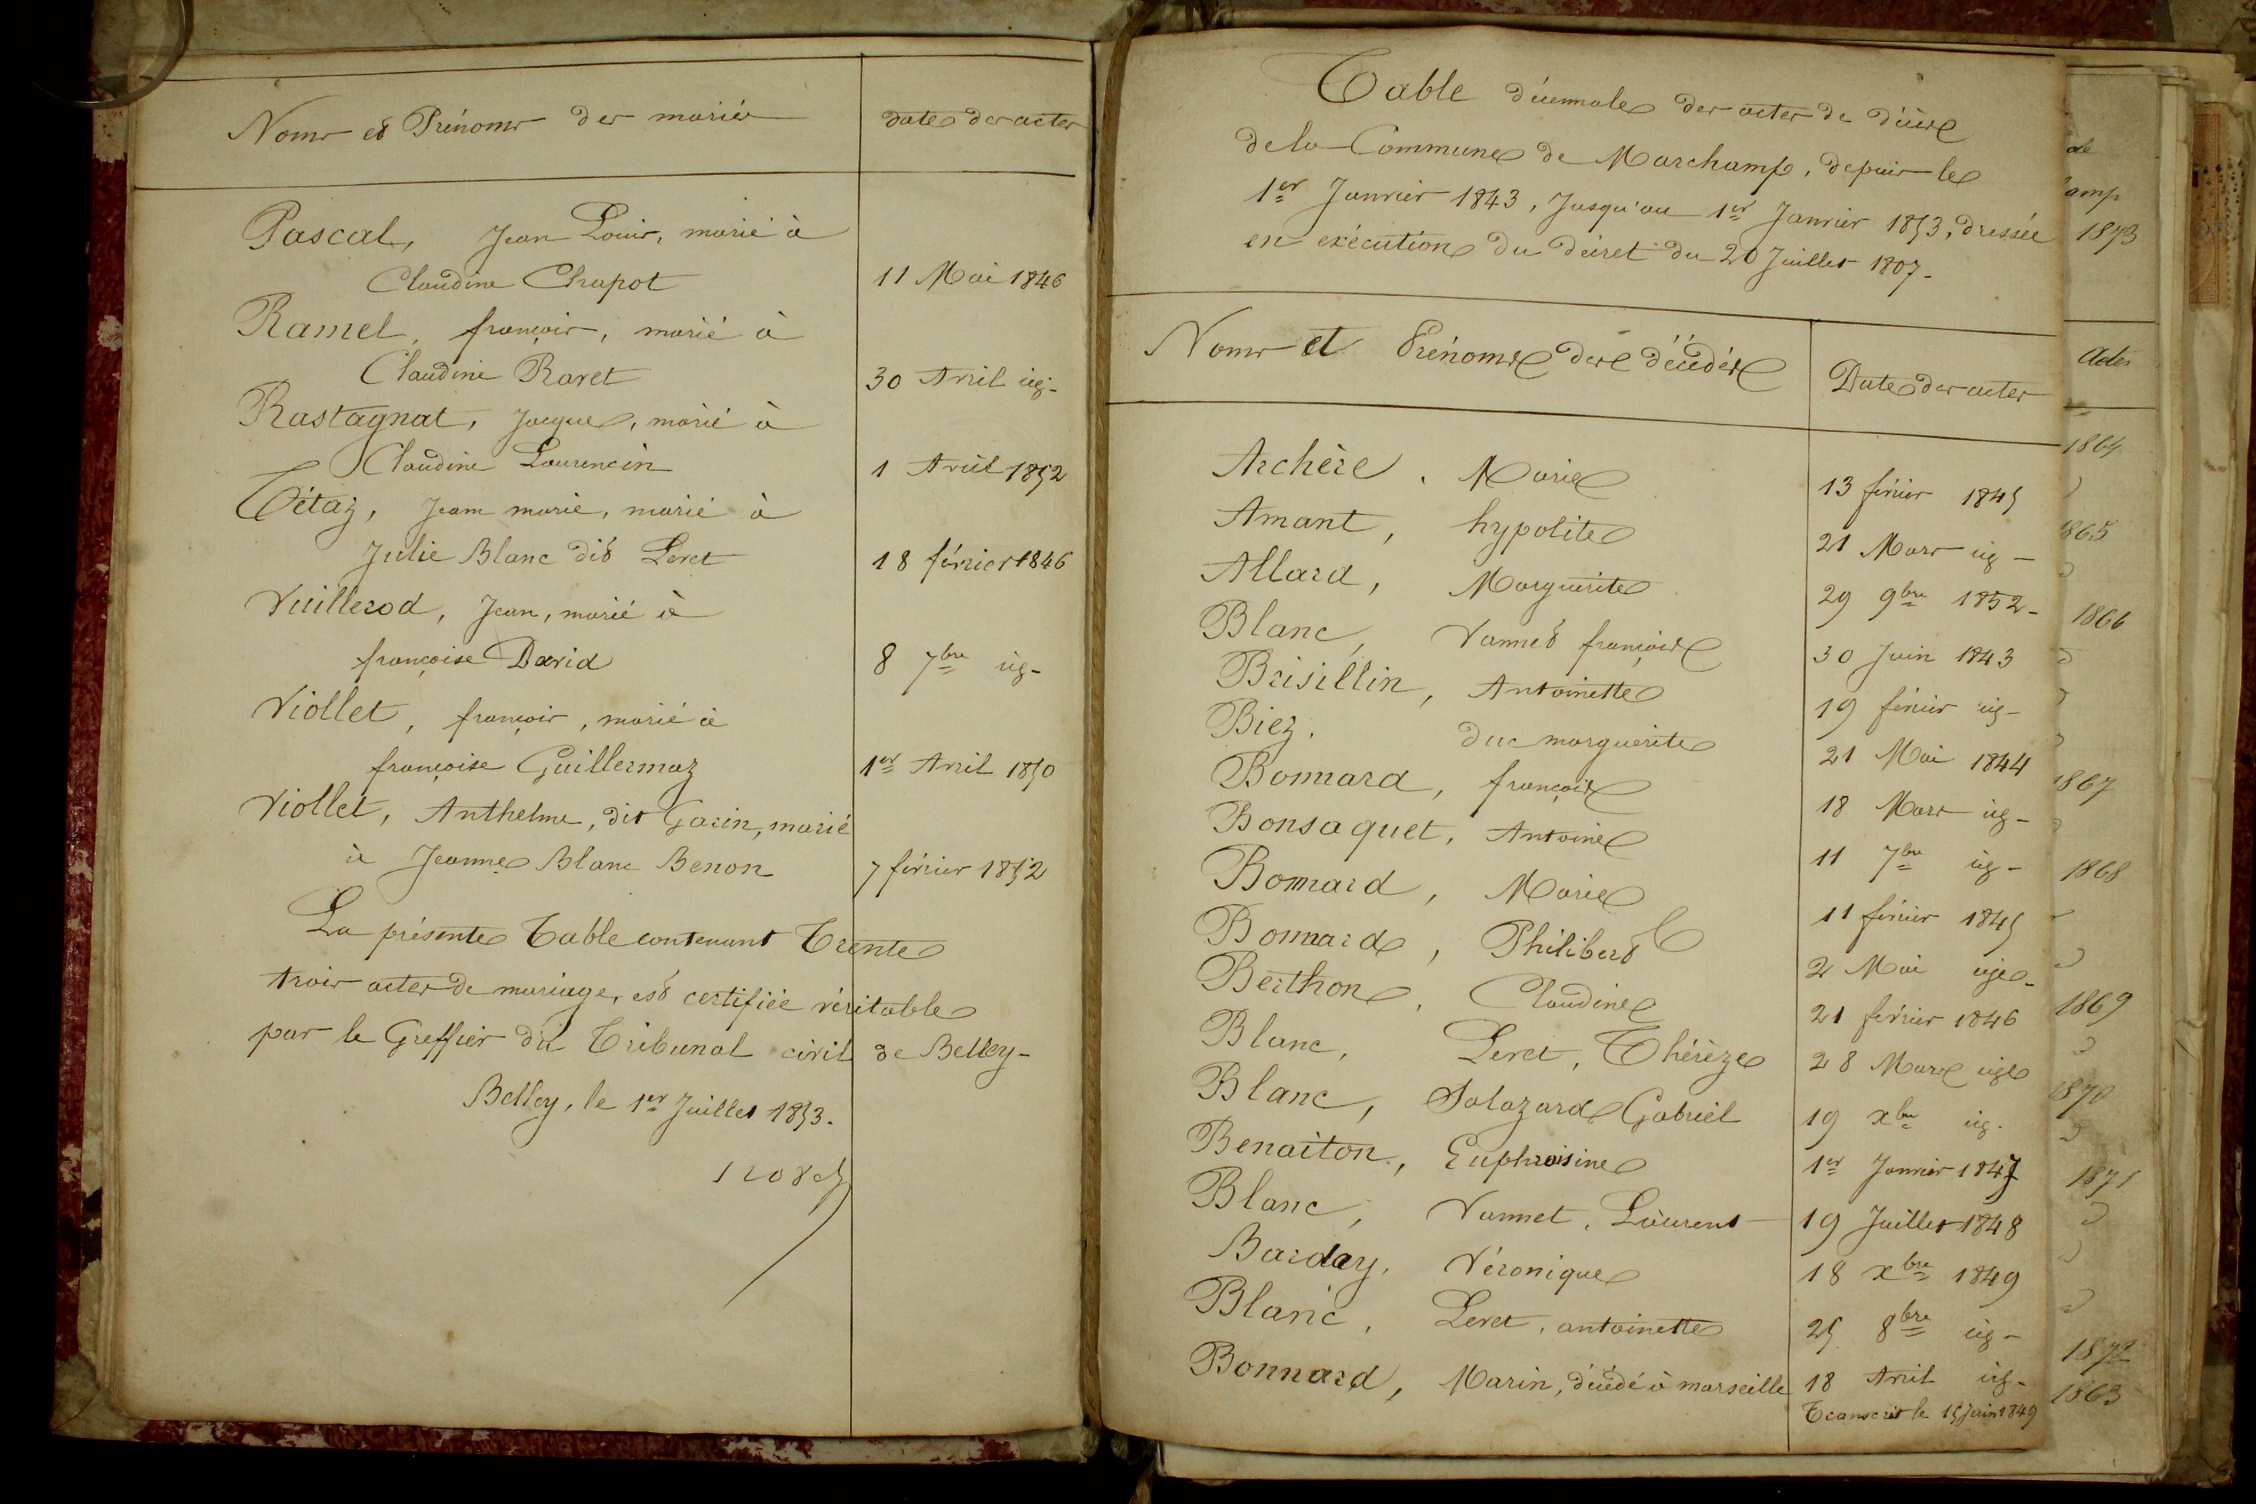 Noms et Prénoms des mariés
date des actes
Pascal, Jean Louis, marié à
Claudine Chapot 11 Mai 1846
Ramel, françois, marié à
Claudine Ravet 30 Avril id.
Rastagnat, Jacques, marié à
Claudine Laurencin 1 Avril 1852
Tétaz, Jean marie, marié à
Julie Blanc dit Leret 18 février 1846
Vuillerod, Jean, marié à
françoise David 8 7bre id.
Viollet, françois, marié à
françoise Guillermaz 1er Avril 1850
Viollet, Anthelme, dit Garin, marié
à Jeanne Blanc Benon 7 février 1852
La présente Table contenant Trente
trois actes de mariage, est certifiée véritable
par le Greffier du Tribunal civil de Belley-
Belley, le 1er Juillet 1853.
Table décennale des actes de décès
de la Commune de Marchamp, depuis le
1er Janvier 1843, Jusqu'au 1er Janvier 1853, dressée
en exécution du décret du 20 Juillet 1807-
Noms et Prénoms des décédés
Date des actes
Archère, Marie 13 février 1845
Amant, hypolite 21 Mars id -
Allard, Marguerite 29 9bre 1852-
Blanc, Vannet françois 30 Juin 1843
Brisillin, Antoinette 19 février id-
Biez. duc marguerite 21 Mai 1844
Bonnard, françois 18 Mars id-
Bonsaquet, Antoine 11 7bre id-
Bonnard, Marie 11 février 1845
Bonnard, Philibert 2 Mai id.
Berthon, Claudine 21 février 1846
Blanc, Leret, Thérèze 28 Mars id
Blanc, Salazard Gabriel 19 xbre id.
Benaiton, Euphroisine 1er Janvier 1847
Blanc, Vannet, Laurent 19 Juillet 1848
Barday, Véronique 18 xbre 1849
Blanc, Leret, antoinette 25 8bre id-
Bonnard, Marin, décédé à marseille 18 Avril id-
Transcrit le 15 Juin 1849
de
amp
1873
Actes
1864
1865
1866
1867
1868
1869
1870
1871
1872
1863